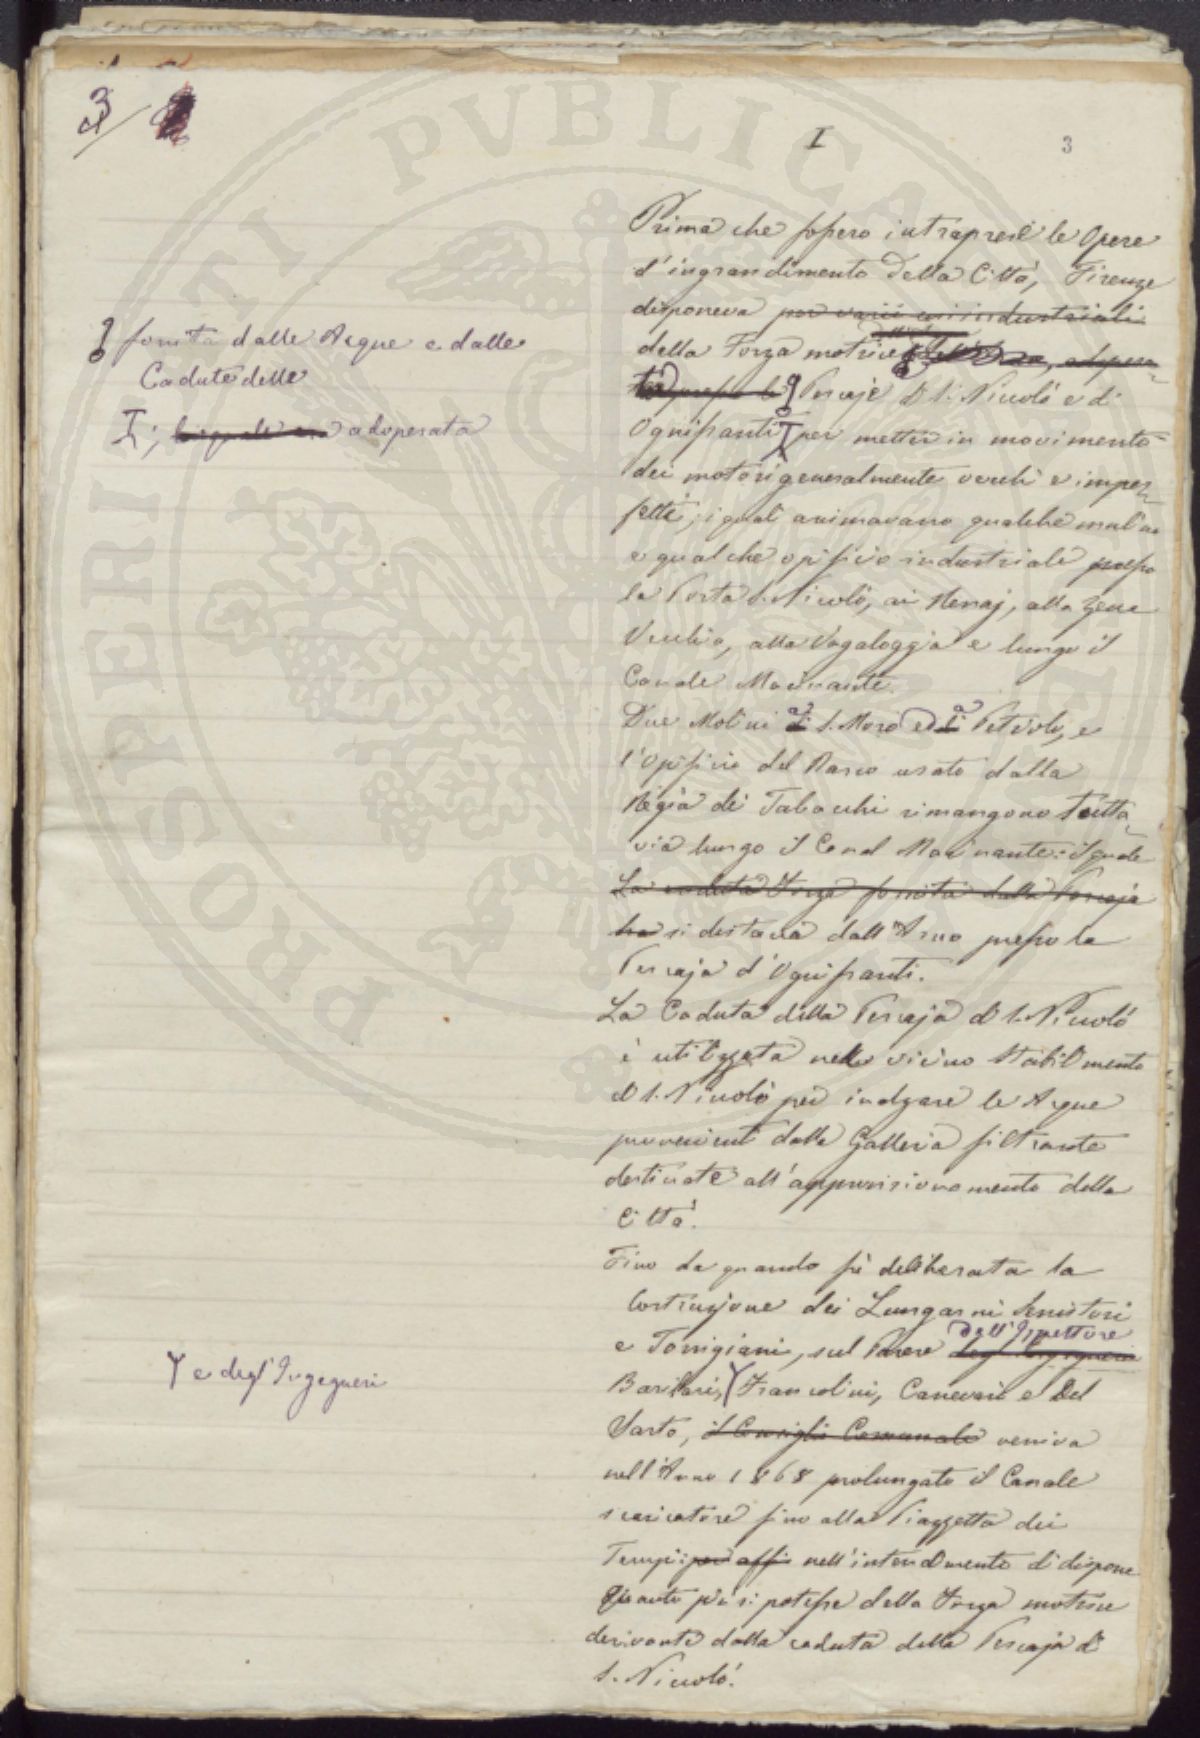 3/
I
3
Prima che fossero intraprese le Opere
d'ingrandimento della Città, Firenze
disponeva per varii usi industriali
della Forza motrice
presso le Pescaje di S. Niccolò e di
Ognissanti per metter in movimento
dei motori generalmente vecchi e imper-
fetti, i quali animavano qualche mulino
e qualche opificio industriale presso
la Porta S. Niccolò, ai Renaj, alla Zecca
Vecchia, alla Vagaloggia e lungo il
Canale Macinante.
Due Molini di S. Moro ed di Petriolo, e
l'opificio del Barco usato dalla
Regìa dei Tabacchi rimangono tutta-
via lungo il Canal Macinante: il quale
La caduta Forza fornita dalla Pescaja
ha si distacca dall'Arno presso la
Pescaja d'Ognissanti.
La Caduta della Pescaja di S. Niccolò
è utilizzata nello vicino Stabilimento
di S. Niccolò per inalzare le Acque
provenienti dalla Galleria filtrante
destinate all'approvisionamento della
Città.
Fino da quando fù deliberata la
Costruzione dei Lungarni Serristori
e Torrigiani, sul Parere degl'Ingegneri dell'Ispettore
Barilari, Francolini, Canevari e Del
Sarto, il Consiglio Comunale veniva
nell'Anno 1868 prolungato il Canale
scaricatore fino alla Piazzetta dei
Tempi: per affi nell'intendimento di dispone
quanto più si potesse della Forza motrice
derivante dalla caduta della Pescaja di
S. Niccolò.
fornita dalle Acque e dalle
Cadute delle
I; adoperata
e degl'Ingegneri
PROSPERITATI PVBLICAE